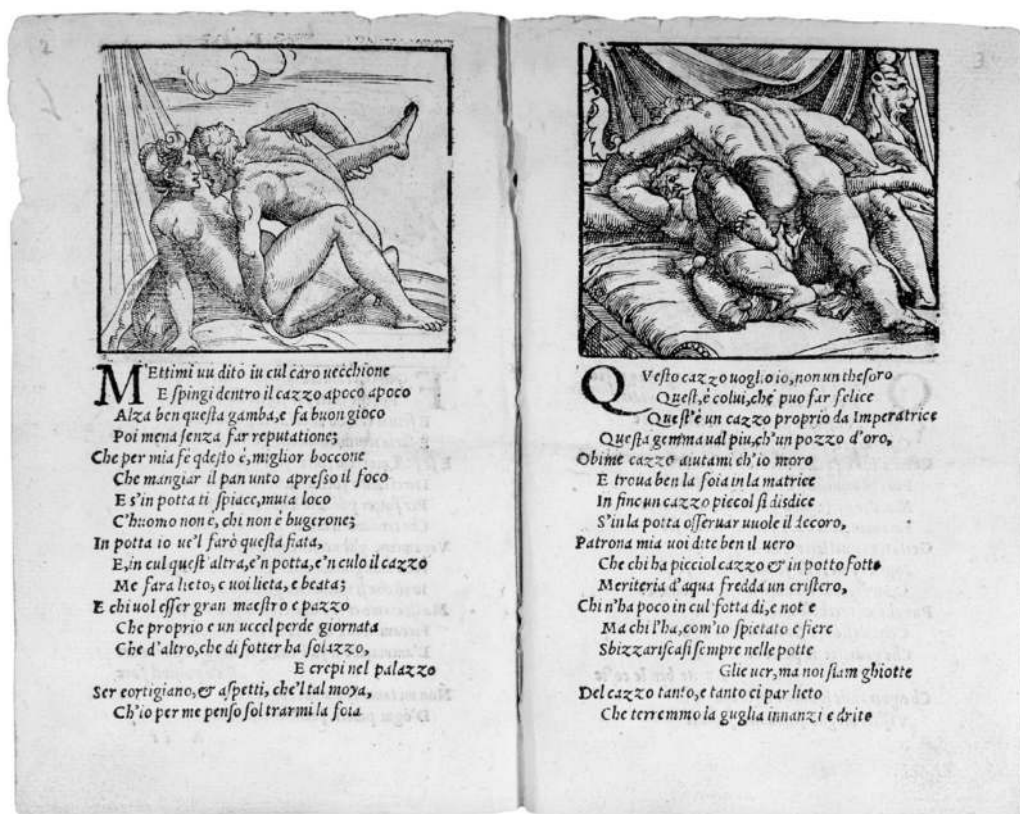 M'Ettimi uu dito iu cul caro uecchione
E spingi dentro il cazzo apoco apoco
Alza ben questa gamba, e fa buon gioco
Poi mena senza far reputatione;
Che per mia fe qdesto è, miglior boccone
Che mangiar il pan unto apresso il foco
E s'in potta ti spiace, muta loco
C'huomo non e, chi non è bugerone;
In potta io ue'l farò questa fiata,
E, in cul quest'altra, e'n potta, e'n culo il cazzo
Me fara lieto, e uoi lieta, e beata;
E chi uol esser gran maestro e pazzo
Che proprio e un uccel perde giornata
Che d'altro, che di fotter ha solazzo,
E crepi nel palazzo
Ser cortigiano, & aspetti, che'l tal moya,
Ch'io per me penso sol trarmi la foia
QVesto cazzo uoglio io, non un thesoro
Quest, è colui, che puo far felice
Quest'è un cazzo proprio da Imperatrice
Questa gemma ual piu, ch'un pozzo d'oro,
Obime cazzo aiutami ch'io moro
E troua ben la foia in la matrice
In fine un cazzo picciol si disdice
S'in la potta osseruar uuole il decoro,
Patrona mia uoi dite ben il uero
Che chi ha picciol cazzo & in potto fotte
Meriteria d'aqua fredda un cristero,
Chi n'ha poco in cul fotta di, e not e
Ma chi l'ha, com'io spietato e fiere
Sbizzariscasi sempre nelle potte
Gli e uer, ma noi siam ghiotte
Del cazzo tanto, e tanto ci par lieto
Che terremmo la guglia innanzi e drito